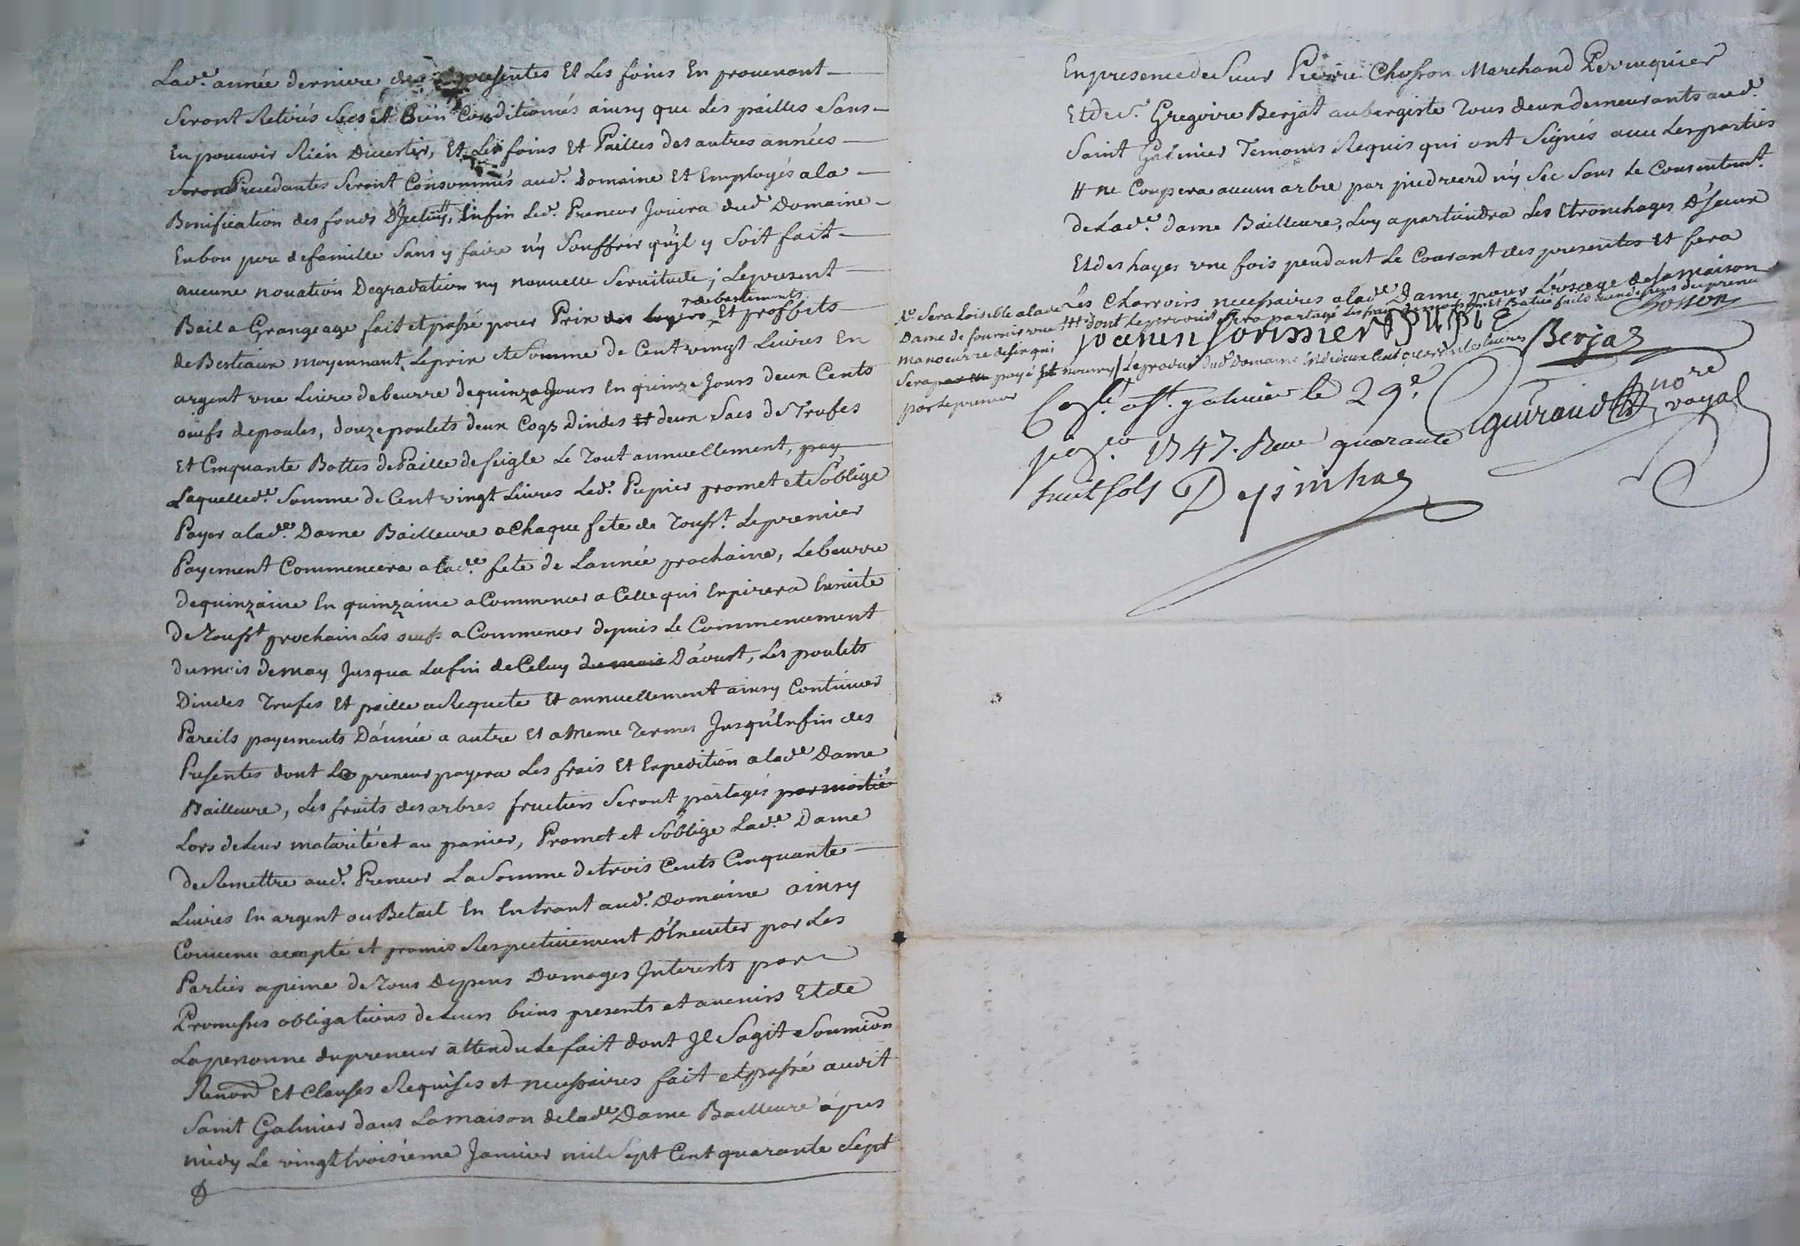 Lad.e année derniere des presentes Et Les foins En provenant
Seront Retirés Secs et Bien Conditionnés ainsy que Les pailles Sans
En pouvoir Rien Divertir, Et Les foins Et Pailles des autres années
Precedantes Seront Consommés aud. Domaine Et Employés a la
Bonification des fonds D'Jceluy, Enfin Led. Preneur Jouira dud Domaine
En bon pere de famille Sans y faire n'y Souffrir qu'jl y Soit fait
aucune novation Degradation ny nouvelle Servitude; Le present
Bail a Grangeage fait et passé pour Prix des Et proffits
de Bestiaux moyennant Le prix et Somme de Cent vingt Livres En
argent une Livre de beurre de quinze Jours En quinze Jours deux Cents
oeufs de poules, douze poulets deux Coqs Dindes Et deux Sacs de Trufes
Et Cinquante Bottes de Paille de Seigle Le Tout annuellement, pay
Laquelle d.e Somme de Cent vingt Livres Led. Pupier promet et S'oblige
Payer a lad.e Dame Bailleure a Chaque fete de Touss.t Le premier
Payement Commencera a lad.e fete de L'année prochaine, Le beurre
de quinzaine En quinzaine a Commencer a Celle qui Expirera Ensuite
De Touss.t prochain Les oeufs a Commencer depuis Le Commencement
du mois de may Jusqua La fin de Celuy du mois D'aoust, Les poulets
Dindes Trufes Et paille a Requete Et annuellement ainsy Continuer
Pareils payements D'année a autre Et a Meme Termes Jusqu'En fin des
Presentes dont Le preneur payera Les frais Et Expedition a lad.e Dame
Bailleure, Les fruits des arbres fruitiers Seront partagés par moitié
Lors de Leur maturité et au panier, Promet et S'oblige Lad.e Dame
De Remettre aud. Preneur La Somme de trois Cents Cinquante
Livres En argent ou Betail En Entrant aud. Domaine ainsy
Convenu accepté et promis Respectivement D'Executer par Les
Parties a peine de Tous Depens Domages Interests par
Promesses obligations de Leurs biens presents et avenirs Et de
La personne du preneur attendu Le fait dont Jl S'agit Soumion
Renond Et Clauses Requises et necessaires fait et passé audit
Saint Galmier dans La maison de lad.e Dame Bailleure apres
midy Le vingt troisieme Janvier mil Sept Cent quarante Sept
En presence de Sieur Pierre Chosson Marchand Perruquier
Et de S. Gregoire Berjat aubergiste Tous deux demeurants aud.
Saint Galmier Temoins Requis qui ont Signés avec Les parties
# ne Coupera aucun arbre par pied verd n'y Sec Sans Le Consentem.t
de Lad.e Dame Bailleure, Luy apartiendra Les Etronchages D'Jceux
Et des hayes une fois pendant Le Courant des presentes Et fera
Les Charrois necessaires a lad.e Dame pour L'usage de Sa maison
Sera Loisible a lade
Dame de fournir une
manoeuvre
Sera payé Et nourry
par Le preneur
Chosson
Janin Sonnier PUPIE
Berjat
Con.lé a S.t galmier le 29.e
1747. Receu quarante
huit Sols Depinhac
Guiraud Nore
royal